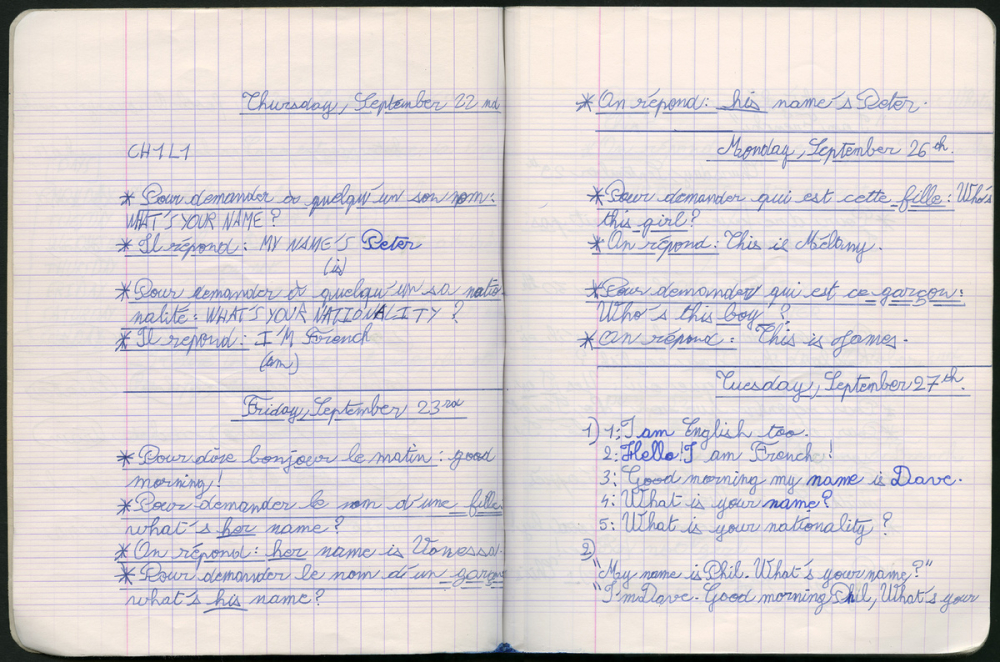 Thursday, September 22 nd
CH1L1
* Pour demander à quelqu'un son nom:
WHAT'S YOUR NAME?
* Il répond: MY NAME'S Peter
(is)
* Pour demander à quelqu'un sa natio
nalité: WHAT'S YOUR NATIONALITY?
* Il répond: I'M French
(am)
Friday, September 23rd
* Pour dire bonjour le matin: good
morning!
* Pour demander le nom d'une fille
what's her name?
* On répond: her name is Vanessa.
* Pour demander le nom d'un garçon
what's his name?
* On répond: his name's Peter.
Monday, September 26th.
* Pour demander qui est cette fille: Who's
this girl?
* On répond: This is Mélany.
* Pour demander qui est ce garçon:
Who's this boy?
* On répond: This is James.
Tuesday, September 27th.
1) 1: I am English too.
2: Hello! I am French!
3: Good morning my name is Dave.
4: What is your name?
5: What is your nationality?
2)
"My name is Phil. What's your name?"
"I'm Dave. Good morning Phil, What's your